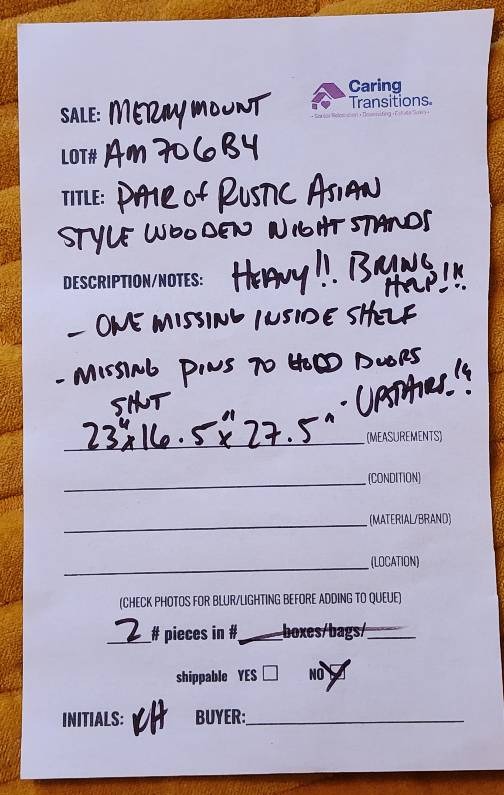 Caring
Transitions®
SALE: MERRYMOUNT
LOT# AM706B4
TITLE: PAIR OF RUSTIC ASIAN
STYLE WOODEN NIGHT STANDS
DESCRIPTION/NOTES: HEAVY!! BRING
HELP!!!
- ONE MISSING INSIDE SHELF
- MISSING PINS TO HOLD DOORS
SHUT
- UPSTAIRS!!
23"x16.5"x27.5" (MEASUREMENTS)
(CONDITION)
(MATERIAL/BRAND)
(LOCATION)
(CHECK PHOTOS FOR BLUR/LIGHTING BEFORE ADDING TO QUEUE)
2 # pieces in # boxes/bags/
shippable YES NO
INITIALS: KH BUYER: